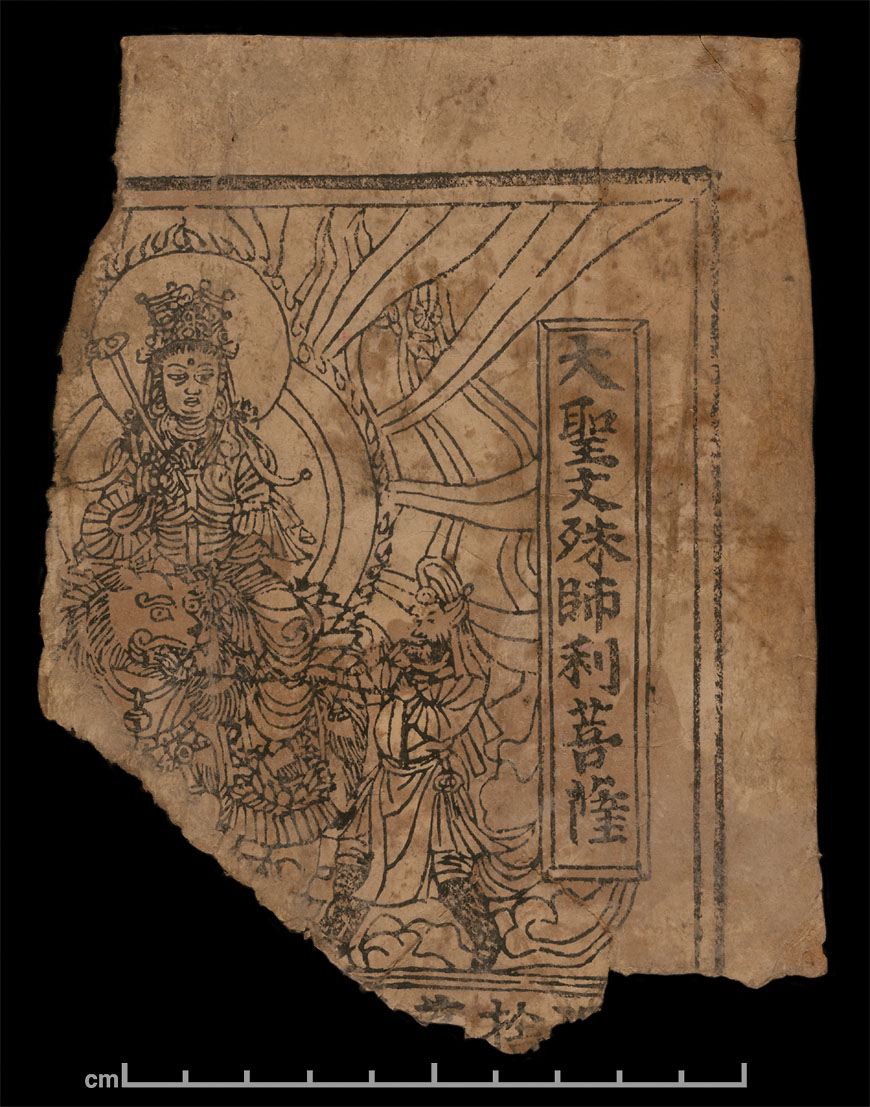 大聖文殊師利菩薩
cm